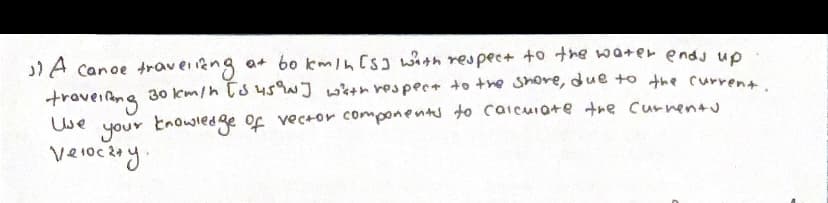 3) A canoe traveling at 60 km/h [S] with respect to the water ends up
traveling 30 km/h [S 45° W] with respect to the shore, due to the current.
Use your knowledge of vector components to calculate the currents
velocity.